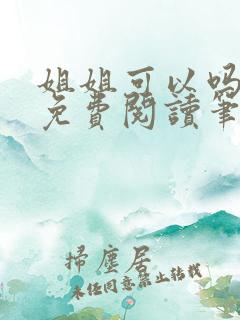 姐姐可以吗
免費閱讀筆
掃塵居
未经同意禁止转载